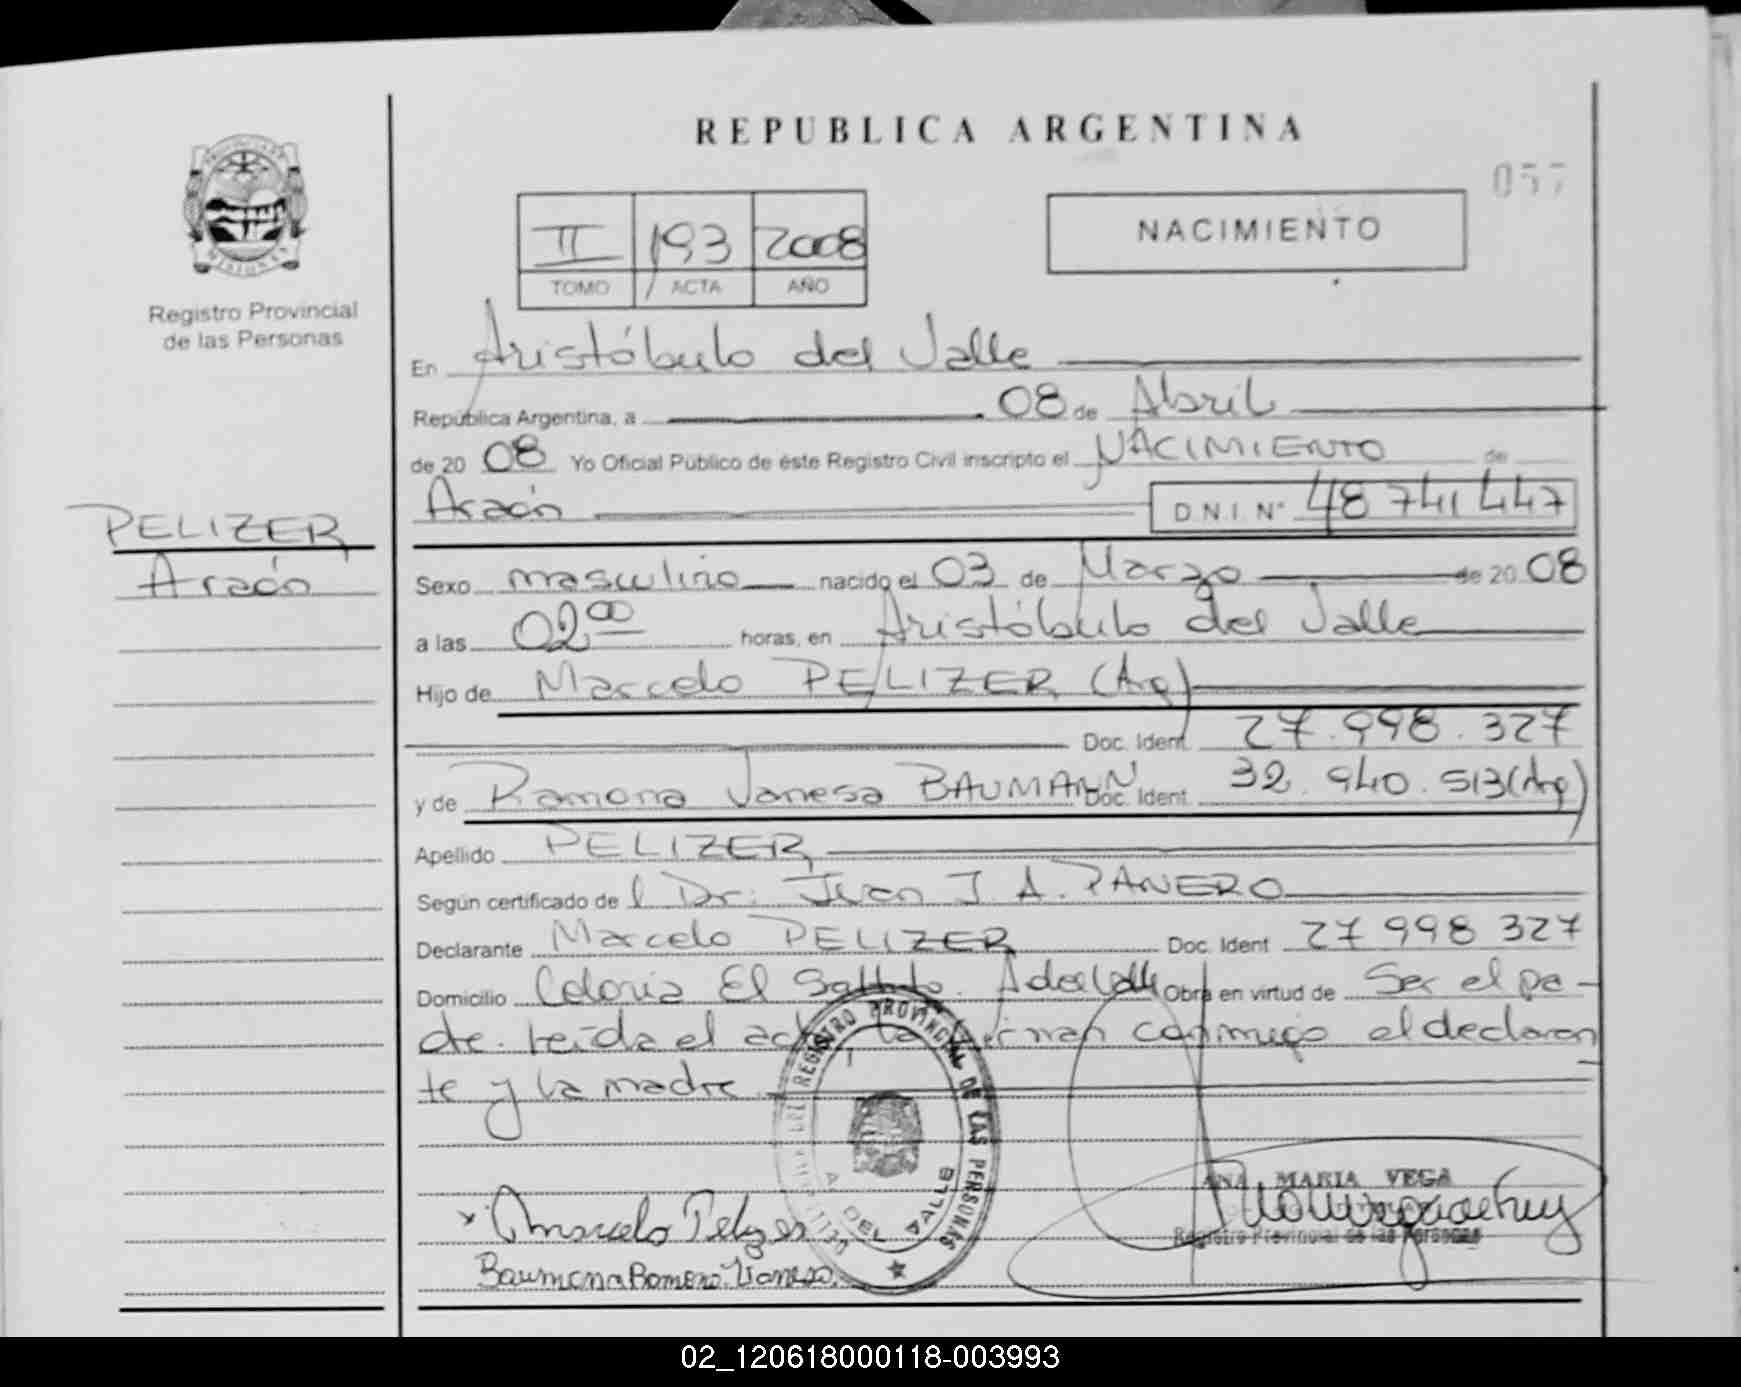 REPUBLICA ARGENTINA
057
PROVINCIA DE MISIONES
Registro Provincial
de las Personas
II 193 2008
TOMO ACTA AÑO
NACIMIENTO
En Aristóbulo del Valle
República Argentina, a 08 de Abril
de 20 08 Yo Oficial Público de éste Registro Civil inscripto el NACIMIENTO de
Aracón D.N.I. N° 48 741 447
PELIZER
Aracón
Sexo masculino nacido el 03 de Marzo de 20 08
a las 02 00 horas, en Aristóbulo del Valle
Hijo de Marcelo PELIZER (Arg)
Doc. Ident. 27.998.327
y de Ramona Vanesa BAUMANN Doc. Ident. 32.940.513 (Arg)
Apellido PELIZER
Según certificado de l Dr. Juan J. A. PANERO
Declarante Marcelo PELIZER Doc. Ident 27 998 327
Domicilio Colonia El Saltito. A del Valle Obra en virtud de Ser el pa-
dre. Leída el acta la firman conmigo el declaran
te y la madre.
REGISTRO PROVINCIAL DE LAS PERSONAS
A. DEL VALLE
Marcelo Pelizer
ANA MARIA VEGA
Registro Provincial de las Personas
02_120618000118-003993